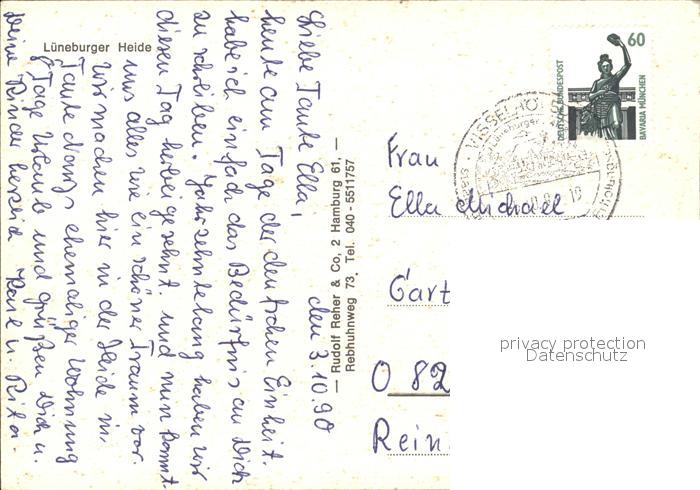 Lüneburger Heide
den 3.10.90
Liebe Tante Ella,
heute am Tage der deutschen Einheit.
habe ich einfach das Bedürfnis an Dich
zu schreiben. Jahrzehntelang haben wir
diesen Tag herbeigesehnt und nun kommt
uns alles wie ein schöner Traum vor.
Wir machen hier in der Heide in
Tante Nannys ehemaliger Wohnung
8 Tage Urlaub und grüßen Dich u.
Deine Kinder herzlich u. Rita.
— Rudolf Reher & Co, 2 Hamburg 61, —
Rebhuhnweg 73, Tel. 040 - 5511757
60
DEUTSCHE BUNDESPOST
BAVARIA MÜNCHEN
VISSELHÖ
Lüneburger
Frau
Ella Michael
Gart
O 82
Rein
privacy protection
Datenschutz